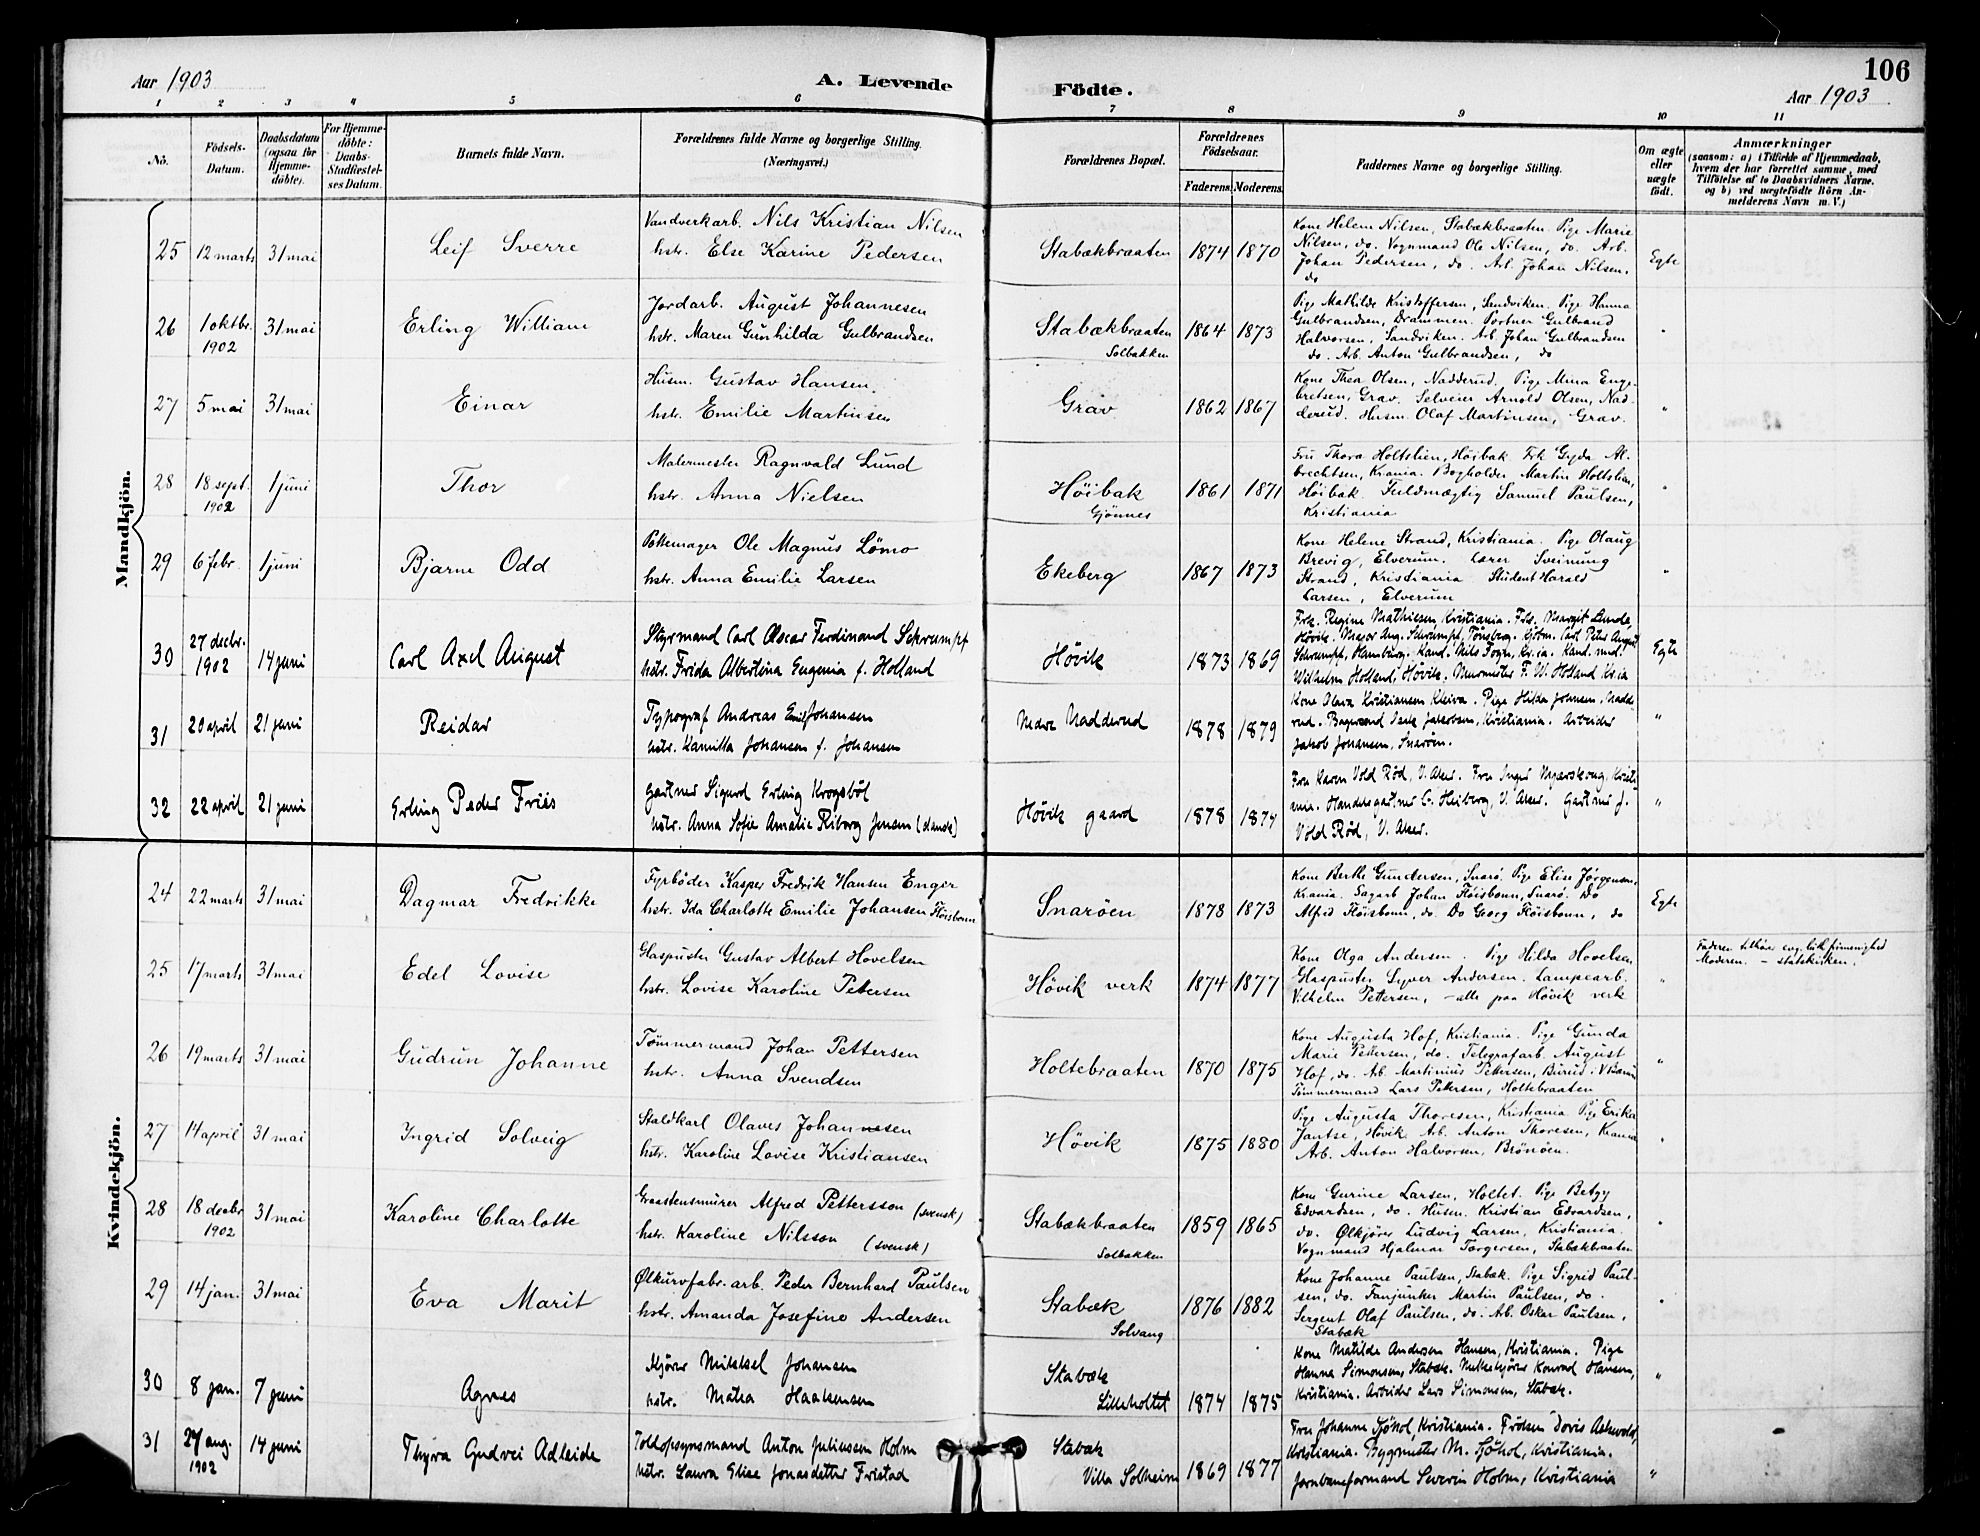 Aar 1903
A. Levende
Födte.
106
Aar 1903
1 2 3 4 5 6 7 8 9 10 11
No.
Födsels-Datum.
Daabsdatum (ogsaa for Hjemme-döbte).
For Hjemme-döbte: Daabs-Stadfæstel-ses Datum.
Barnets fulde Navn.
Forældrenes fulde Navne og borgerlige Stilling.
(Næringsvei.)
Forældrenes Bopæl.
Forældrenes Födselsaar.
Faderens. Moderens.
Faddernes Navne og borgerlige Stilling.
Om ægte eller uægte födt.
Anmærkninger
(saasom: a) i Tilfælde af Hjemmedaab, hvem der har forrettet samme, med Tilföielse af to Daabsvidners Navne, og b) ved uægtefödte Börn An-melderens Navn m. V.)
Mandkjön.
25 12 marts 31 mai Leif Sverre
Vandverkarb. Nils Kristian Nilsen
hstr. Else Karine Pedersen
Stabækbraaten 1874 1870
Kone Helene Nilsen, Stabækbraaten. Pige Marie
Nilsen, do. Vognmand Ole Nilsen, do. Arb.
Johan Pedersen, do. Arb. Johan Nilsen,
do
Egte
26 1 oktbr. 1902 31 mai Erling William
Jordarb. August Johannesen
hstr. Maren Gunhilda Gulbrandsen
Stabækbraaten
Solbakken
1864 1873
Pige Mathilde Kristoffersen, Sandviken. Pige Hanna
Gulbrandsen, Drammen. Portner Gulbrand
Halvorsen, Sandviken. Arb. Johan Gulbrandsen
do. Arb. Anton Gulbrandsen, do
27 5 mai 31 mai Einar
Husm. Gustav Hansen
hstr. Emilie Martinsen
Grav 1862 1867
Kone Thea Olsen, Nadderud. Pige Mina Enge-
bretsen, Grav. Selveier Arnold Olsen, Nad-
derud. Husm. Olaf Martinsen, Grav.
"
28 18 sept. 1902 1 juni Thor
Malermester Ragnvald Lund
hstr. Anna Nielsen
Høibak
Gjønnes
1861 1871
Fru Thora Holtslien, Høibak. Frk Gyda Al-
brechtsen, Krania. Bogholder Martin Holtslien,
Høibak. Fuldmægtig Samuel Paulsen,
Kristiania
29 6 febr. 1 juni Bjarne Odd
Pottemager Ole Magnus Lömo
hstr. Anna Emilie Larsen
Ekeberg 1867 1873
Kone Helene Strand, Kristiania. Pige Olaug
Brevig, Elverum. Lærer Sveinung
Strand, Kristiania Student Harald
Larsen, Elverum
"
30 27 decbr. 1902 14 juni Carl Axel August
Styrmand Carl Oscar Ferdinand Schrumpf
hstr. Frida Albertina Eugenia f. Holland
Høvik 1873 1869
Frk. Regine Mathiesen, Kristiania. Frk. Margit Lunde,
Høvik. Major Aug. Schrumpf, Tönsberg. Kjøbm. Carl Peter August
Schrumpf, Hamburg. Kand. Nils Fogn, Kr.ia. Kand. med.
Wilhelm Holland, Høvik. Murmester F. W. Holland Kr.ia
Egte
31 20 april 21 juni Reidar
Typograf Andreas Emil Johansen
hstr. Kamilla Johansen f. Johansen
Nadderud 1878 1879
Kone Klara Kristiansen Kleiva. Pige Hilda Johnsen, Nadde-
rud. Kristiania. Arbeider
Jakob Johansen, Snarøen.
"
32 22 april 21 juni Erling Peder Friis
Gartner Sigurd Erling Krogsböl
hstr. Anna Sofie Amalie Riborg Jensen (dansk)
Høvik gaard 1878 1874
Fru Karen Vold Rød, V. Aker. Fru Inger Myarskoug, Kristia-
nia. Handelsgartner C. Heiberg, V. Aker. Gartner J.
Vold Rød, V. Aker.
"
Kvindekjön.
24 22 marts 31 mai Dagmar Fredrikke
Fyrböder Kasper Fredrik Hansen Enger
hstr. Ida Charlotte Emilie Johansen Flöisbonn
Snarøen 1878 1873
Kone Berthe Gundersen, Snarø. Pige Elise Jörgensen,
Krania. Sagarb Johan Flöisbonn, Snarø. Do
Alfred Flöisbonn, do. Do Georg Flöisbonn, do
Egte
25 17 marts 31 mai Edel Lovise
Glaspuster Gustav Albert Hovelsen
hstr. Lovise Karoline Petersen
Høvik verk 1874 1877
Kone Olga Andersen. Pige Hilda Hovelsen
Glaspuster Syver Andersen. Lampearb.
Vilhelm Pettersen, – alle paa Høvik verk
"
Faderen tilhører evg. luth. frimenighed
Moderen – statskirken.
26 19 marts 31 mai Gudrun Johanne
Tömmermand Johan Pettersen
hstr. Anna Svendsen
Holtebraaten 1870 1875
Kone Augusta Hof, Kristiania. Pige Gunda
Marie Pettersen, do. Telegrafarb. August
Hof, do. Ab. Martinius Pettersen, Burud i V Bærum
Tömmermand Lars Pettersen, Holtebraaten
"
27 14 april 31 mai Ingrid Solveig
Staldkarl Olaves Johannesen
hstr. Karoline Lovise Kristiansen
Høvik 1875 1880
Pige Augusta Thoresen, Kristiania Pige Erika
Jantse, Høvik. Arb. Anton Thoresen, Krania
Arb. Anton Halvorsen, Brönöen.
"
28 18 decbr 1902 31 mai Karoline Charlotte
Graastensmurer Alfred Pettersson (svensk)
hstr. Karoline Nilsson (svensk)
Stabækbraaten
Solbakken
1859 1865
Kone Gurine Larsen, Holtet. Pige Betzy
Edvardsen, do. Husm. Kristian Edvardsen,
do. Ølkjører Ludvig Larsen, Kristiania
Vognmand Hjalmar Torgersen, Stabækbraaten
"
29 14 jan. 31 mai Eva Marit
Ølkurvfabr. arb. Peder Bernhard Paulsen
hstr. Amanda Josefine Andersen
Stabæk
Solvang
1876 1882
Kone Johanne Paulsen, Stabæk. Pige Sigrid Paul-
sen, do. Fanjunker Martin Paulsen, do.
Sergent Olaf Paulsen, do. Arb. Oskar Paulsen,
Stabæk
30 8 jan. 7 juni Agnes
Kjører Mikkel Johansen
hstr. Matea Haakensen
Stabæk
Lilleholtet
1874 1875
Kone Matilde Andersen Hansen, Kristiania. Pige
Hanna Simonsen, Stabæk. Melkekjører Konrad Hansen,
Kristiania. Arbeider Lars Simonsen, Stabæk.
"
31 27 aug. 1902 14 juni Thyra Gudvei Adleide
Toldopsynsmand Anton Juliussen Holm
hstr. Laura Elise Jonasdetter Fristad
Stabæk
Villa Solheim
1869 1877
Fru Johanne Sjöhol, Kristiania. Fröken Doris Askevold,
Kristiania. Bygmester M. Sjöhol, Kristiania.
Jernbaneformand Severin Holm, Kristiania
"